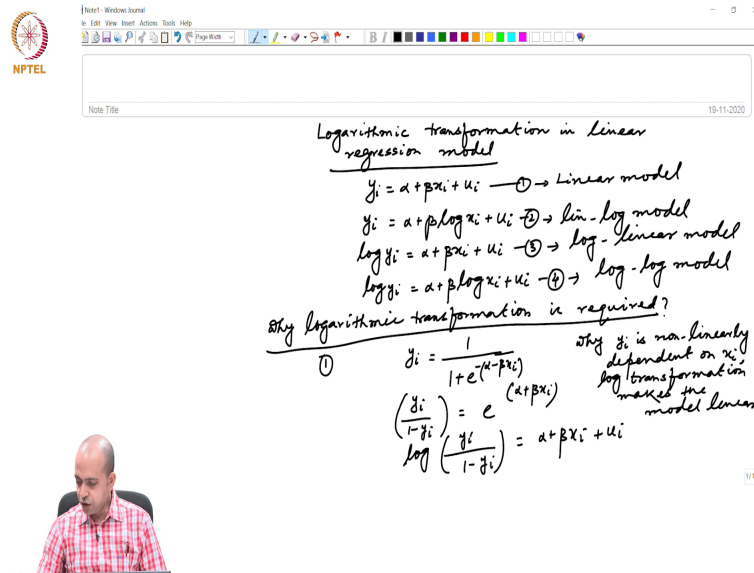 NPTEL
Note1 - Windows Journal
le Edit View Insert Actions Tools Help
Page Width
B I
Note Title
19-11-2020
Logarithmic transformation in linear
regression model
yi = α + βxi + ui — ① → Linear model
yi = α + β log xi + ui – ② → lin-log model
log yi = α + βxi + ui – ③ → log-linear model
log yi = α + β log xi + ui – ④ → log-log model
Why logarithmic transformation is required?
① yi = 1 / (1 + e^-(α-βxi))
(yi / 1-yi) = e^(α+βxi)
log (yi / 1-yi) = α + βxi + ui
Why yi is non-linearly
dependent on xi,
log transformation
makes the
model linear
1/1